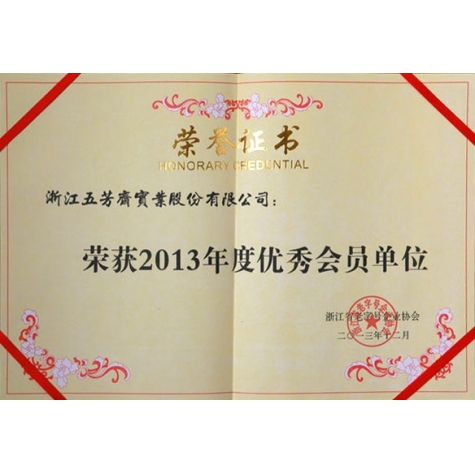 荣誉证书
HONORARY CREDENTIAL
浙江五芳齋實業股份有限公司：
荣获2013年度优秀会员单位
浙江省老字号企业协会
二〇一三年十二月